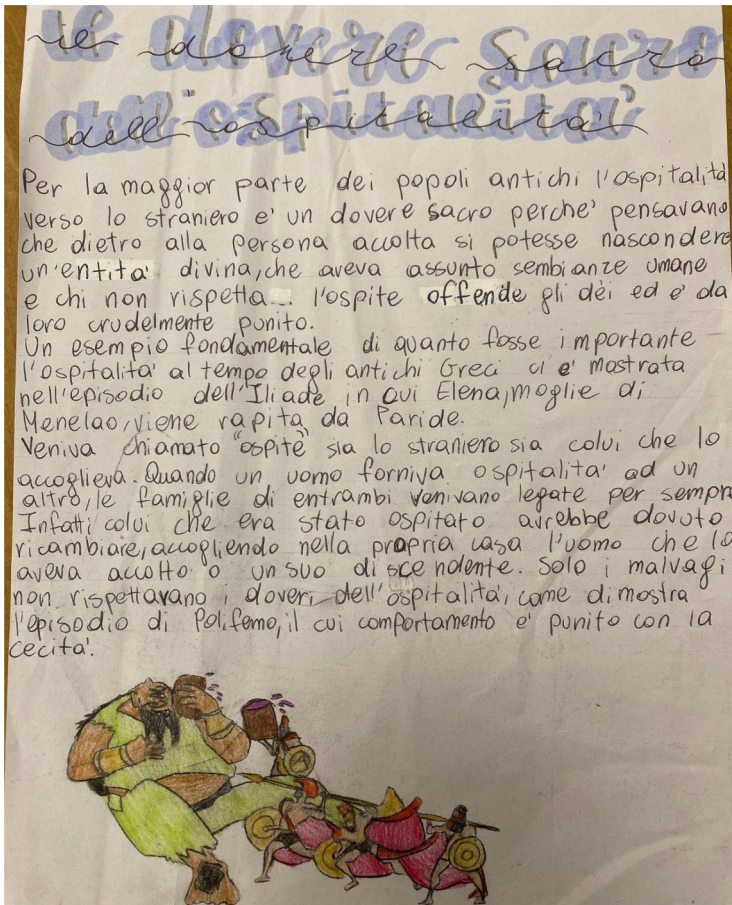 il dovere sacro
dell'ospitalità
Per la maggior parte dei popoli antichi l'ospitalità
verso lo straniero e' un dovere sacro perche' pensavano
che dietro alla persona accolta si potesse nascondere
un'entita' divina, che aveva assunto sembianze umane
e chi non rispetta... l'ospite offende gli dèi ed e' da
loro crudelmente punito.
Un esempio fondamentale di quanto fosse importante
l'ospitalita' al tempo degli antichi Greci ci e' mostrata
nell'episodio dell'Iliade in cui Elena, moglie di
Menelao, viene rapita da Paride.
Veniva chiamato "ospite" sia lo straniero sia colui che lo
accoglieva. Quando un uomo forniva ospitalita' ad un
altro, le famiglie di entrambi venivano legate per sempre
Infatti colui che era stato ospitato avrebbe dovuto
ricambiare, accogliendo nella propria casa l'uomo che lo
aveva accolto o un suo discendente. Solo i malvagi
non rispettavano i doveri dell'ospitalità, come dimostra
l'episodio di Polifemo, il cui comportamento e' punito con la
cecita'.